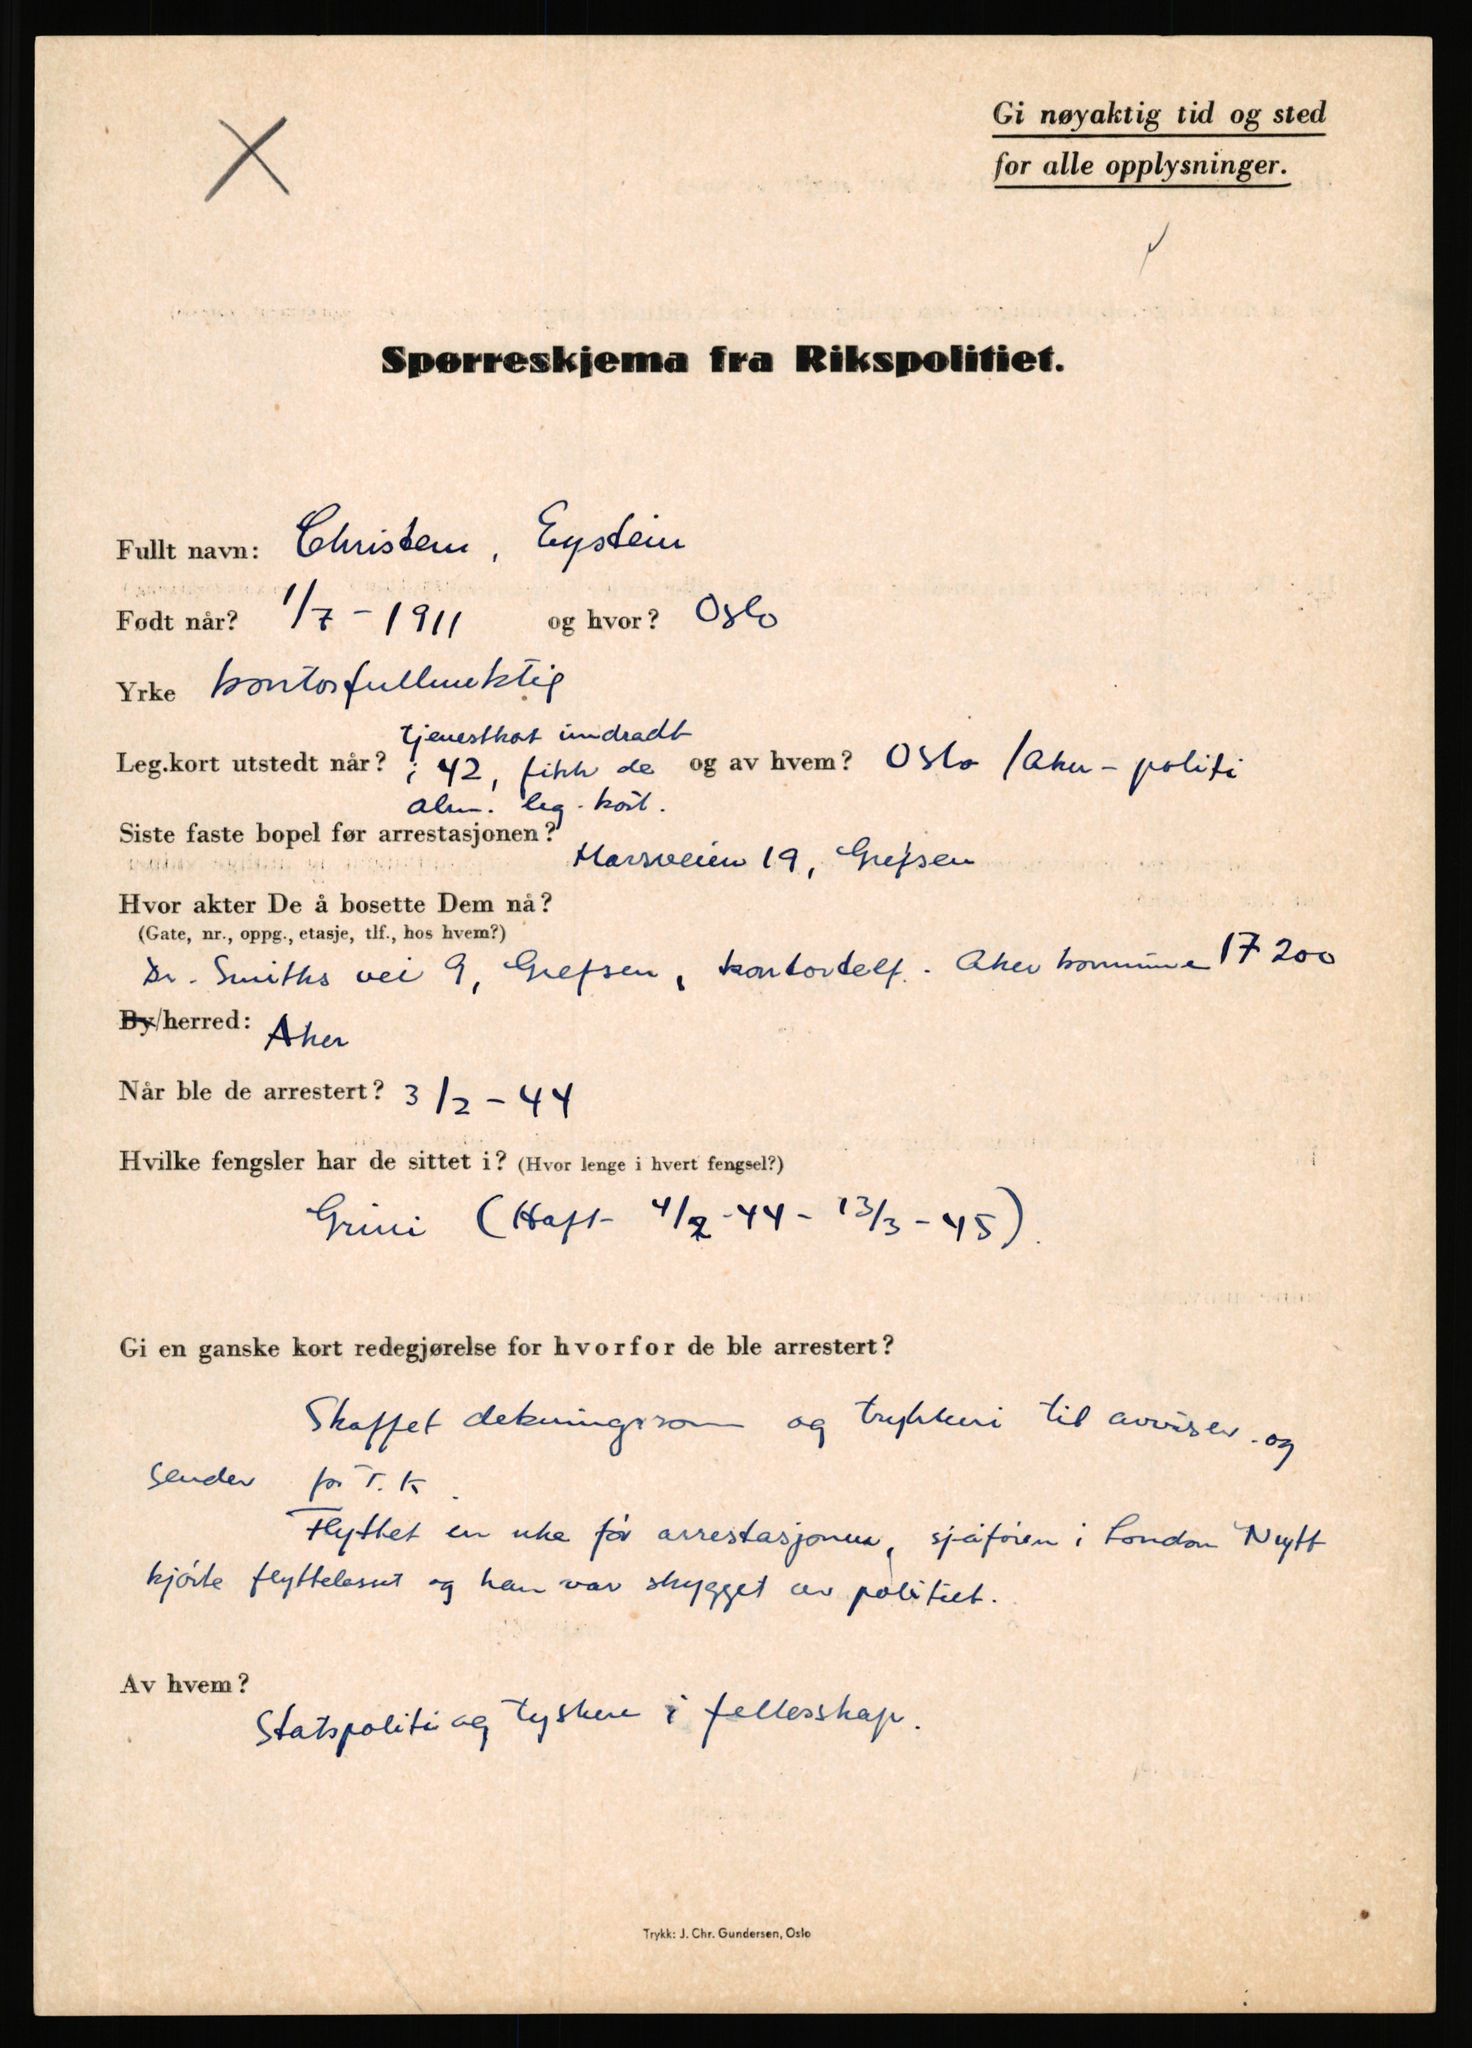 Gi nøyaktig tid og sted
for alle opplysninger.
Spørreskjema fra Rikspolitiet.
Fullt navn: Christem, Eystein
Født når? 1/7 - 1911 og hvor? Oslo
Yrke kontorfullmektig
tjenestkort inndradt
Leg.kort utstedt når? i 42, fikk de og av hvem? Oslo / Aker - politi
alm. leg. kort.
Siste faste bopel før arrestasjonen?
Marsveien 19, Grefsen
Hvor akter De å bosette Dem nå?
(Gate, nr., oppg., etasje, tlf., hos hvem?)
Dr. Smiths vei 9, Grefsen, kontortelf. Aker kommune 17200
By/herred: Aker
Når ble de arrestert? 3/2 - 44
Hvilke fengsler har de sittet i? (Hvor lenge i hvert fengsel?)
Grini (Haft 4/2 - 44 - 13/3 - 45).
Gi en ganske kort redegjørelse for hvorfor de ble arrestert?
Skaffet dekningsrom og trykkeri til aviser og
sender for T. K.
Flyttet en uke før arrestasjonen, sjåføren i London Nytt
kjørte flyttelasset og han var skygget av politiet.
Av hvem?
Statspoliti og tyskere i fellesskap.
Trykk: J. Chr. Gundersen, Oslo